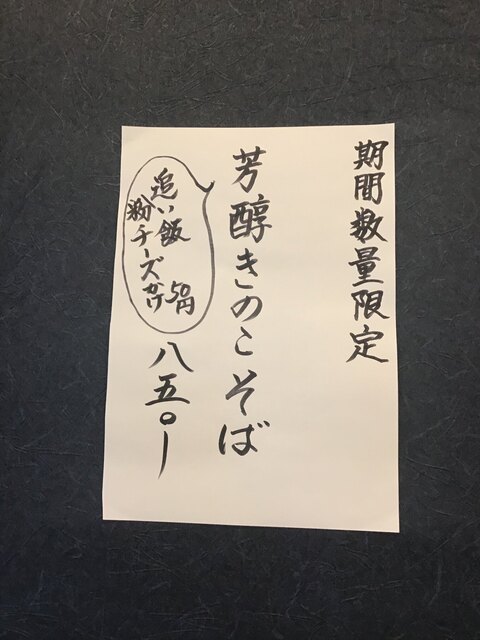 期間数量限定
芳醇きのこそば
八五〇ー
追い飯
粉チーズかけ
50円